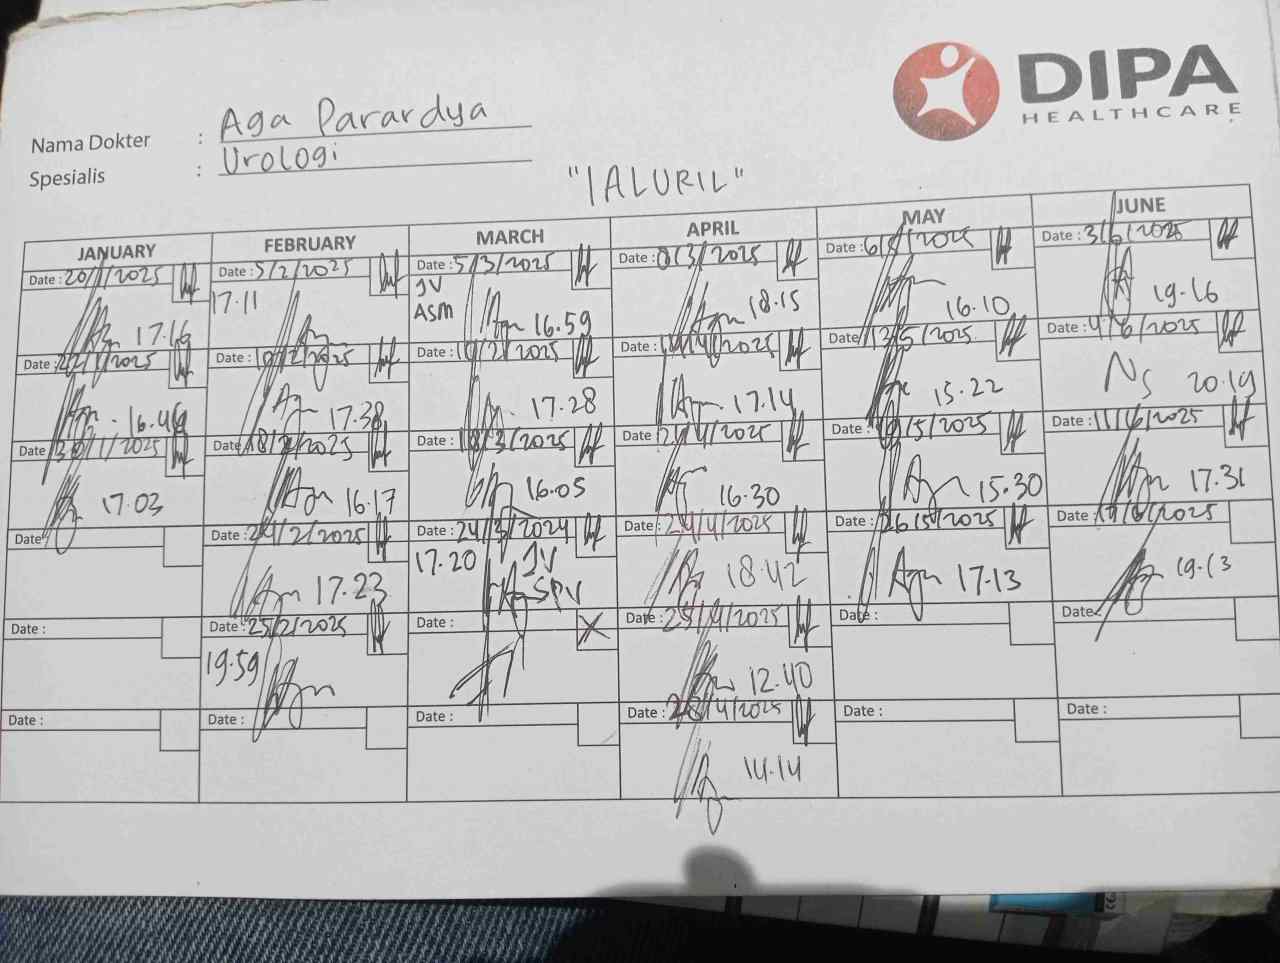 DIPA
HEALTHCARE
Nama Dokter : Aga Parardya
Spesialis : Urologi
"IALURIL"
JANUARY FEBRUARY MARCH APRIL MAY JUNE
Date : 20/1/2025 Date : 5/2/2025 Date : 5/3/2025 Date : 8/3/2025 Date : 6/5/2025 Date : 3/6/2025
17.16 17.11 JV ASM 16.59 18.15 16.10 19.16
Date : 22/1/2025 Date : 10/2/2025 Date : Date : 14/4/2025 Date : 13/5/2025 Date : 4/6/2025
16.46 17.38 17.28 17.14 15.22 NS 20.19
Date : 30/1/2025 Date : 18/2/2025 Date : 18/3/2025 Date : Date : 19/5/2025 Date : 11/6/2025
17.03 16.17 16.05 16.30 15.30 17.31
Date : Date : 24/2/2025 Date : 24/3/2024 Date : 24/4/2025 Date : 26/5/2025 Date :
17.23 17.20 JV SPV 18.42 17.13 19.13
Date : Date : 25/2/2025 Date : Date : 25/4/2025 Date : Date :
19.59 12.40
Date : Date : Date : Date : 28/4/2025 Date : Date :
14.14